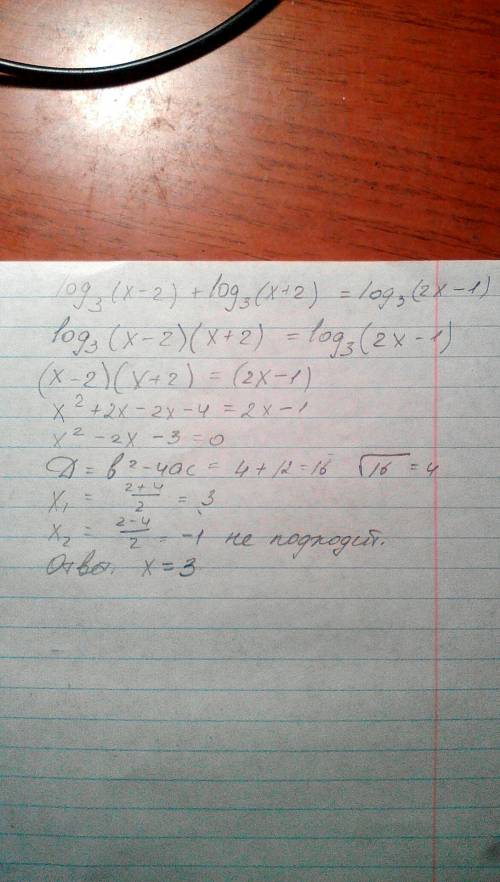 log₃(x-2) + log₃(x+2) = log₃(2x-1)
log₃(x-2)(x+2) = log₃(2x-1)
(x-2)(x+2) = (2x-1)
x² + 2x - 2x - 4 = 2x - 1
x² - 2x - 3 = 0
D = b² - 4ac = 4 + 12 = 16 √16 = 4
x₁ = (2+4)/2 = 3
x₂ = (2-4)/2 = -1 не подходит.
Ответ. x = 3